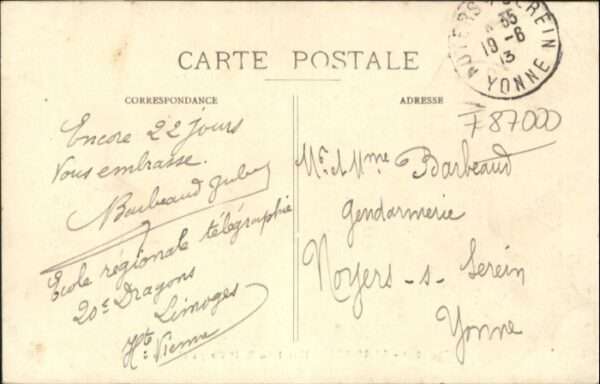 CARTE POSTALE
CORRESPONDANCE
Encore 22 jours
Vous embrasse.
Barbeaud
École régionale télégraphie
20e Dragons
Limoges
Hte Vienne
ADRESSE
NOYERS-S-SEREIN
35
19-6
13
YONNE
F 87000
Mr et Mme Barbeaud
Gendarmerie
Noyers-s-Serein
Yonne